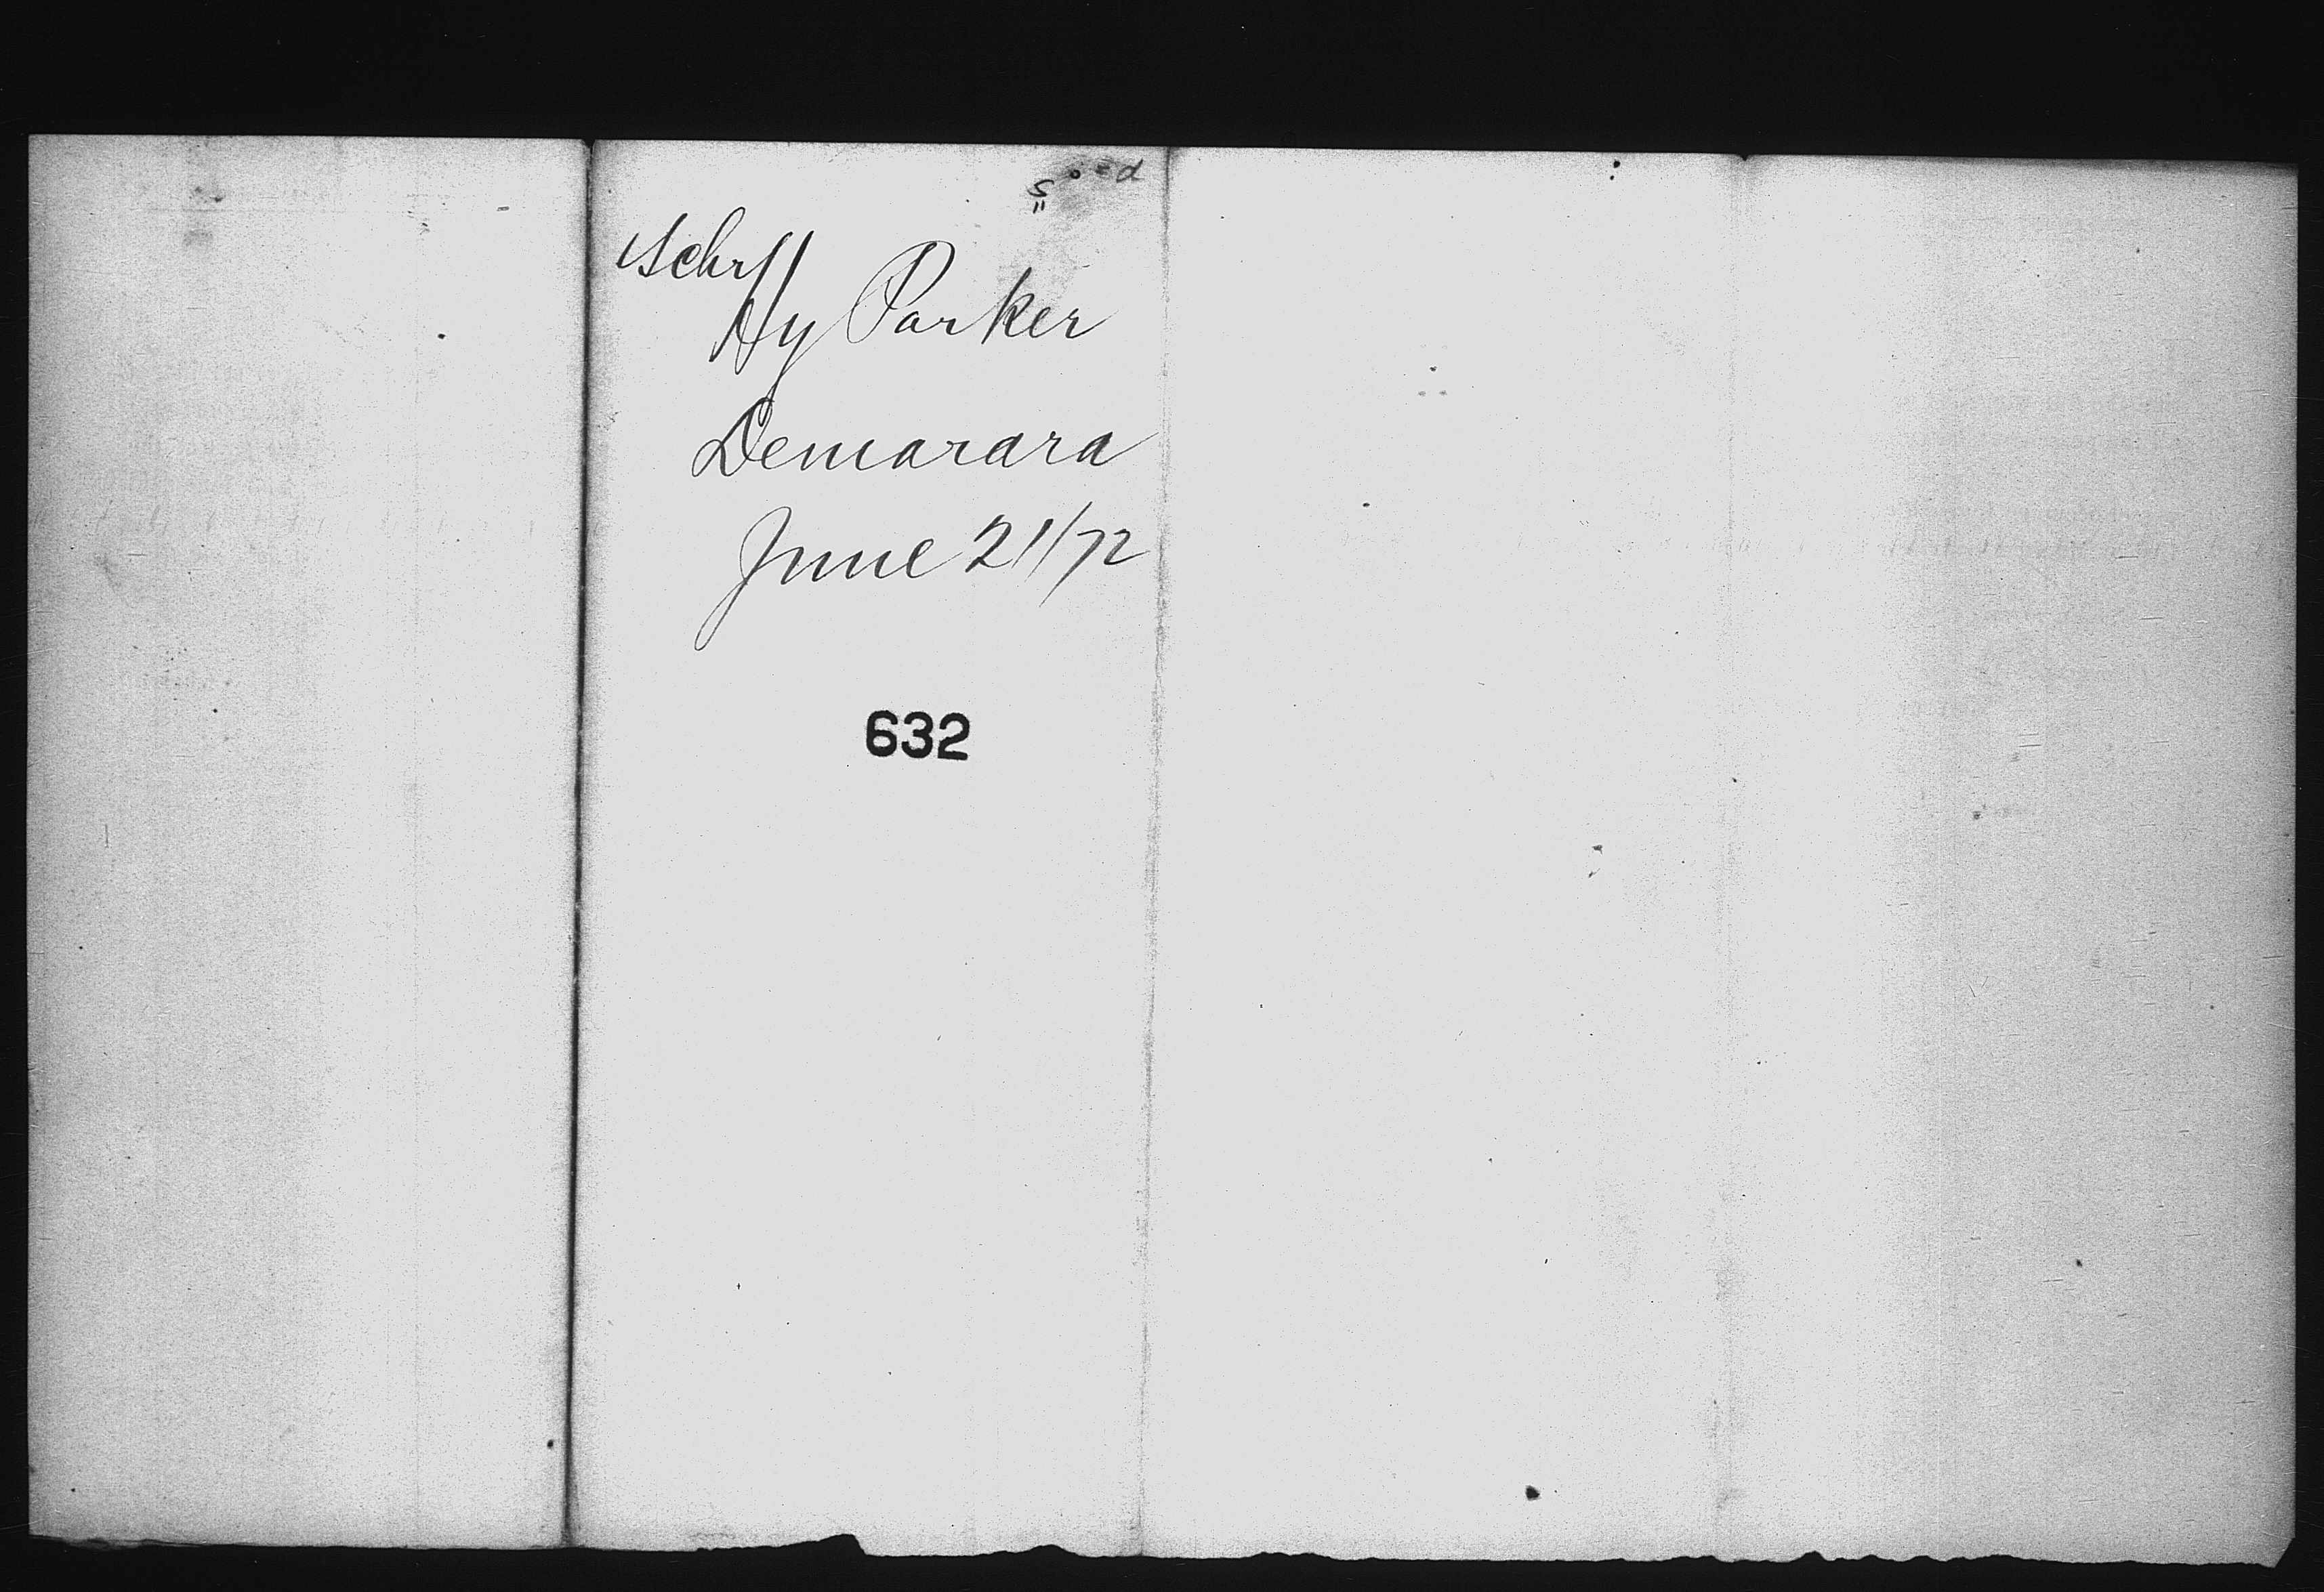 Schr
Hy Parker
Demarara
June 21/72
632